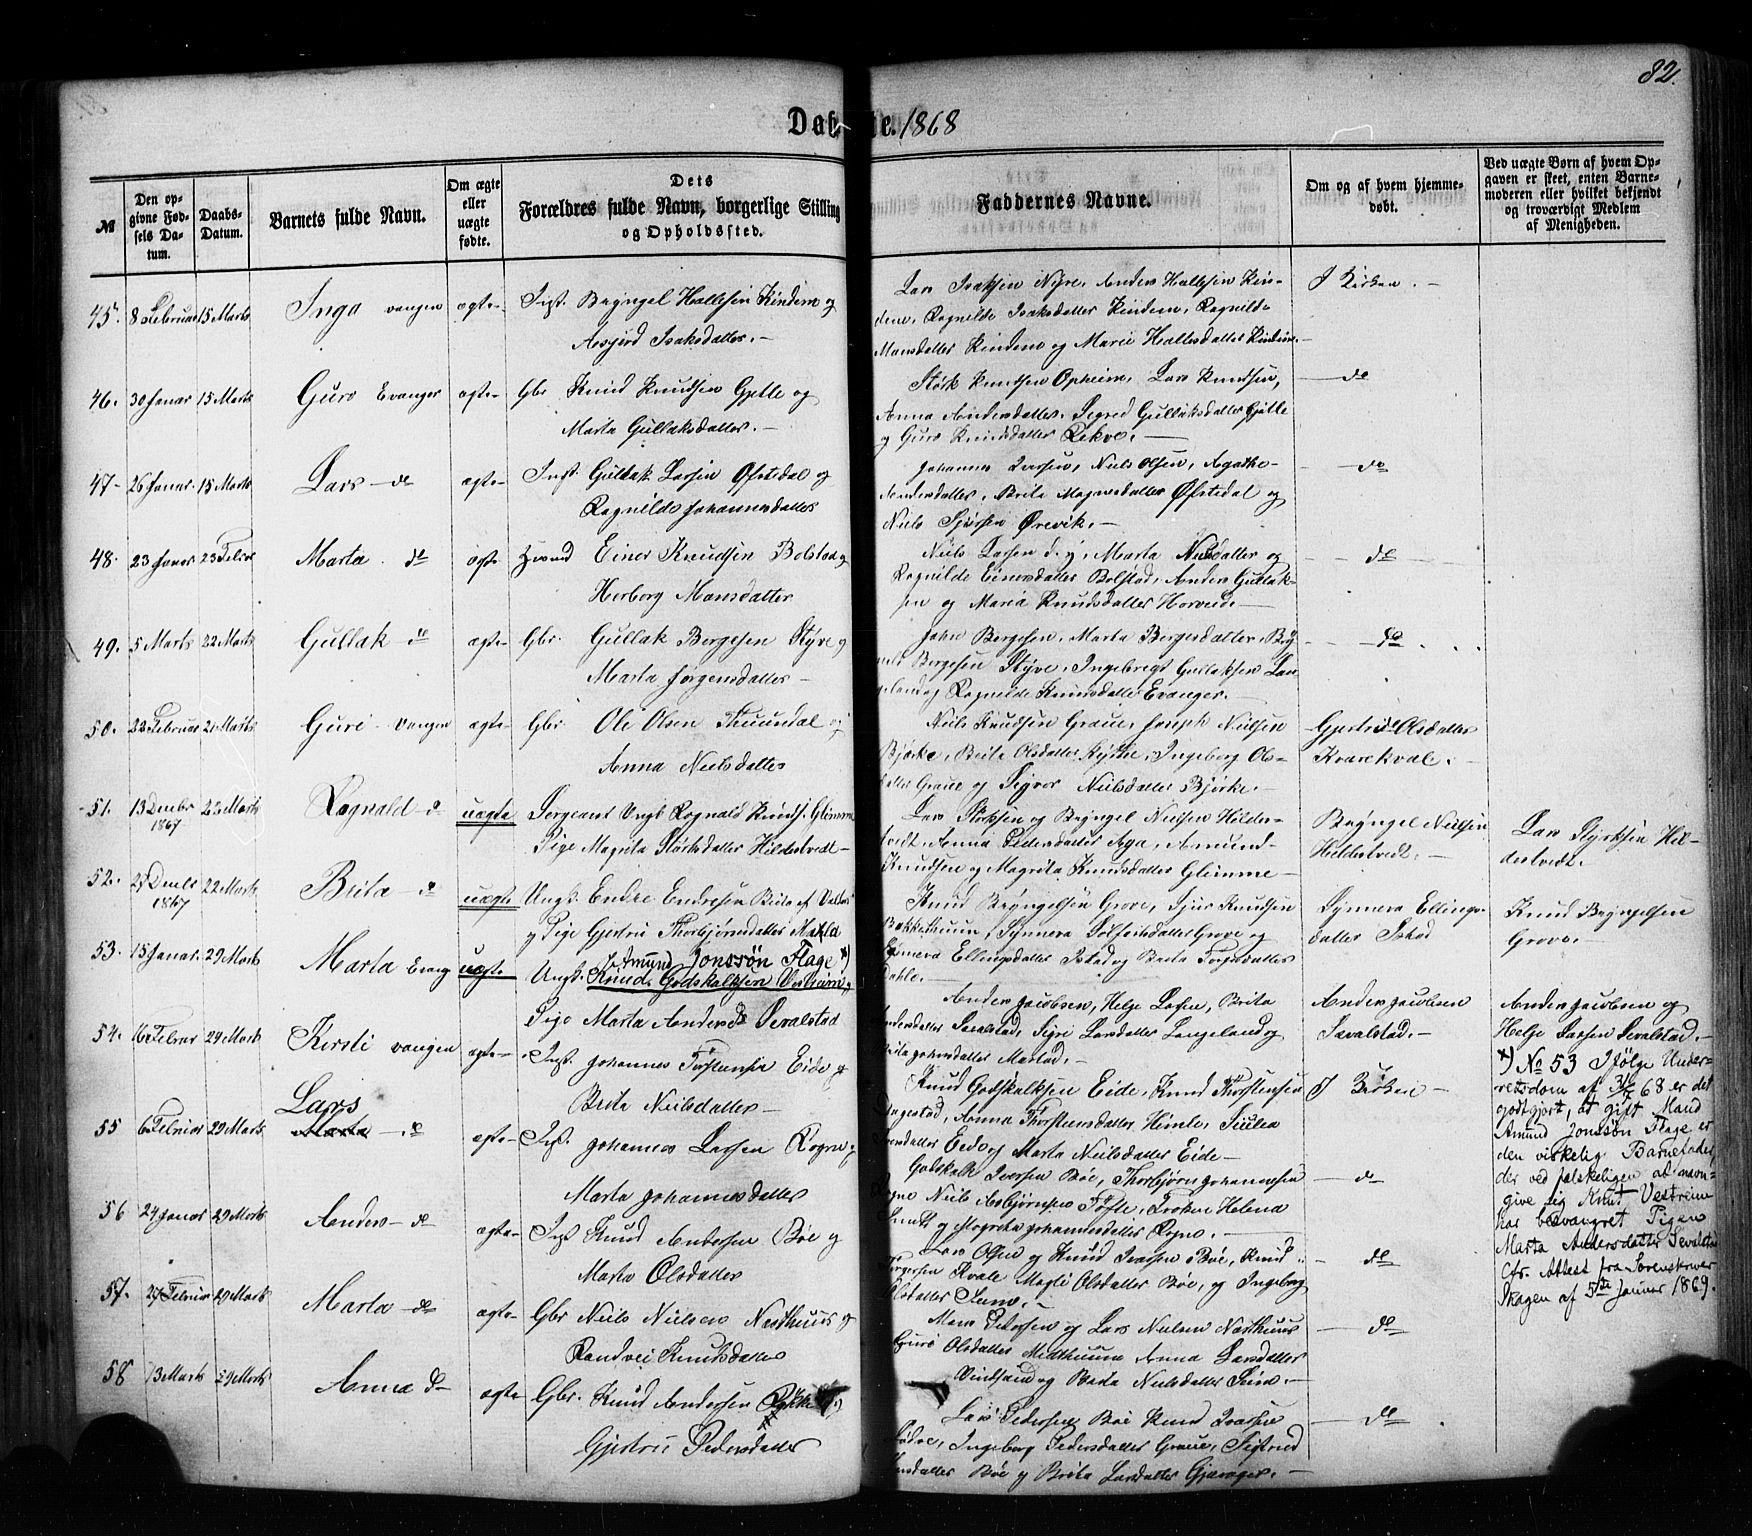 82.
Daabte. 1868
№
Den op-
givne Fød-
sels Da-
tum.
Daabs-
Datum.
Barnets fulde Navn.
Om ægte
eller
uægte
fødte.
Dets
Forældres fulde Navn, borgerlige Stilling
og Opholdssted.
Faddernes Navne.
Om og af hvem hjemme-
døbt.
Ved uægte Børn af hvem Op-
gaven er skeet, enten Barne-
moderen eller hvilket bekjendt
og troværdigt Medlem
af Menigheden.
45. 8 Februar 15 Marts Inga vangen ægte Inst. Brynjel Hallesen Kindem og
Asgjerd Isaksdatter.
Lars Isaksen Nyre, Anders Hallesen Kin-
dem, Ragnilde Isaksdatter Kindem, Ragnilde
Mansdatter Kindem og Marie Hallesdatter Kindem.
I Kirken.
46. 30 Januar 15 Marts Guro Evanger ægte Gbr Knud Knudsen Gjelle og
Marta Gullaksdatter.
Størk Knudsen Opheim, Lars Knudsen,
Anna Andersdatter, Sigrid Gullaksdatter Gjelle
og Guro Knudsdatter Rekve.
do
47 26 Januar 15 Marts Lars do ægte Inst. Gullak Larsen Øfstedal og
Ragnilde Johannesdatter
Johannes Ivarsen, Niels Olsen, Agathe
Andersdatter, Brita Magnesdatter Øfstedal og
Niels Sjursen Ørevik.
do
48. 23 Januar 23 Februar Marta do ægte Einar Knudsen Bolstad og
Herborg Mansdatter
Niels Larsen d. y., Marta Nielsdatter og
Ragnilde Einersdatter Bolstad, Anders Gullak-
sen og Maria Knudsdatter Horveid.
do
49. 5 Marts 22 Marts Gullak do ægte Gbr. Gullak Børgesen Styve og
Marta Jørgensdatter
John Børgesen, Marta Børgesdatter, Bryn-
jels Børgesen Styve, Ingebregt Gullaksen Lan-
geland og Ragnilde Knudsdatter Evanger.
do
50. 22 Februar 21 Marts Guri vangen ægte Gbr Ole Olsen Tuundal og
Anna Nielsdatter
Niels Knudsen Graue, Joseph Nielsen
Bjørke, Brita Olsdatter Kythe, Ingeborg Ols-
datter Graue og Sigvor Nielsdatter Bjørke.
Gjertrud Olsdatter
Kvarekvale.
51. 13 Decmbr 1867 22 Marts Ragnald do uægte Sergeant Ungk Ragnald Knuds. Glimme
Pige Magrita Størksdatter Hildestvedt
Lars Størksen og Brynjel Nielsen Hildes-
tvedt, Anna Pedersdatter Aga, Amund
Knudsen og Magrita Knudsdatter Glimme
Brynjel Nielsen
Hildestvedt.
Lars Styrksen Hil-
destvedt.
52. 1867 22 Marts Brita do uægte Ungk. Endre Endresen
og Pige Gjertru Thorbjørnsdatter
Knud Brynjelsen Grove, Sjur Knudsen
Bakkethuun, Synneva Grove og
Synneva Ellingsdatter Istad og Brita
Dahle.
Synneva Ellings-
datter Istad
Knud Brynjelsen
Grove.
53. 15 Januar 29 Marts Marta Evang uægte Amund Jonssøn Flage *)
Ungk. Knud Godskalksen Vestreim,
Pige Marta Andersd Sevalstad
Anders Jacobsen, Helge Larsen, Brita
Andersdatter Sevalstad, Sigri Larsdatter Langeland og
Brita Johansdatter Mastad.
Anders Jacobsen
Sevalstad.
Anders Jacobsen og
Helge Larsen Sevalstad.
54. 16 Februar 29 Marts Kirsti vangen ægte Inst. Johannes Torstensen Eide og
Brita Nielsdatter
Knud Godskalksen Eide, Knud Thorstensen
Dagestad, Anna Thorstensdatter Himle,
Eide og Marta Nielsdatter Eide
I Kirken
*) No 53 Ifølge Under-
retsdom af 68 er det
godtgjort, at gift Mand
Amund Jonssøn Flage er
den virkelig Barnefader,
der ved falskeligen at navn-
give sig Knut Vestreim
har besvangret Pigen
Marta Andersdatter Sevalstad
Cfr. Attest fra Sorenskriver
Skagen af 5te Januar 1869.
55 6 Februar 29 Marts Lars Marta do ægte Inst. Johannes Larsen Rogne og
Marta Johannesdatter
Godskalk Ivarsen Bøe, Thorbjørn Johannesen
Rogne Niels Asbjørnsen Tøfte, Frøken Helena
og Magreta Johannesdatter Rogne.
do
56 24 Januar 29 Marts Anders do ægte Inst Knud Andersen Bøe og
Marta Olsdatter
Lars Olsen og Knud Ivarsen Bøe, Knud
Kvale Magli Olsdatter Bøe, og Ingeborg
Olsdatter
do
57. 27 Februar 29 Marts Marta do ægte Gbr Niels Nielsen Nesthuus og
Randvei Knudsdatter
Mons Pedersen og Lars Nielsen Nesthuus
Guro Olsdatter Midthuun Anna Larsdatter
og Brita Nielsdatter
do
58 13 Marts 29 Marts Anna do ægte Gbr. Knud Andersen og
Gjertru Pedersdatter
Lars Pedersen Bøe Knud Ivarsen
Ingeborg Pedersdatter Graue, Sigtrud
Bøe og Brita Larsdatter Gjerager.
do